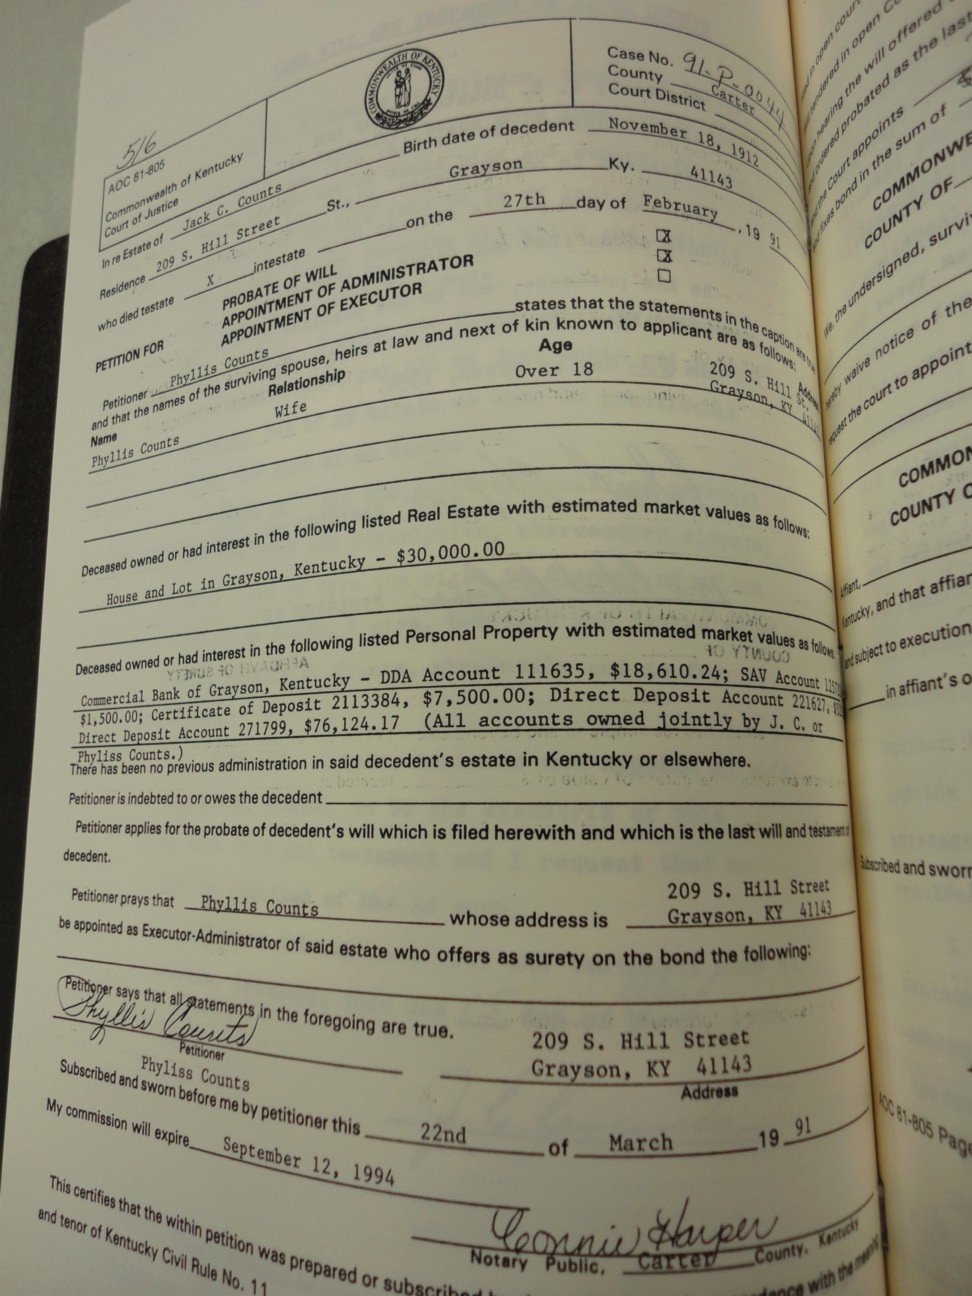 516
AOC 81-805
Commonwealth of Kentucky
Court of Justice
COMMONWEALTH OF KENTUCKY
Case No. 91-P-0044
County Carter
Court District
Birth date of decedent November 18, 1912
In re Estate of Jack C. Counts
Residence 209 S. Hill Street St., Grayson Ky. 41143
who died testate X intestate on the 27th day of February, 19 91
PETITION FOR
PROBATE OF WILL X
APPOINTMENT OF ADMINISTRATOR X
APPOINTMENT OF EXECUTOR
Petitioner Phyllis Counts states that the statements in the caption are
and that the names of the surviving spouse, heirs at law and next of kin known to applicant are as follows:
Name Relationship Age Address
Phyllis Counts Wife Over 18 209 S. Hill St.
Grayson, KY 41143
Deceased owned or had interest in the following listed Real Estate with estimated market values as follows:
House and Lot in Grayson, Kentucky - $30,000.00
Deceased owned or had interest in the following listed Personal Property with estimated market values as follows
Commercial Bank of Grayson, Kentucky - DDA Account 111635, $18,610.24; SAV Account
$1,500.00; Certificate of Deposit 2113384, $7,500.00; Direct Deposit Account 221627,
Direct Deposit Account 271799, $76,124.17 (All accounts owned jointly by J. C. or
Phyliss Counts.)
There has been no previous administration in said decedent's estate in Kentucky or elsewhere.
Petitioner is indebted to or owes the decedent
Petitioner applies for the probate of decedent's will which is filed herewith and which is the last will and testament of
decedent.
Petitioner prays that Phyllis Counts whose address is 209 S. Hill Street
Grayson, KY 41143
be appointed as Executor-Administrator of said estate who offers as surety on the bond the following:
Petitioner says that all statements in the foregoing are true.
Phyllis Counts
Petitioner
Phyliss Counts
209 S. Hill Street
Grayson, KY 41143
Address
Subscribed and sworn before me by petitioner this 22nd of March 19 91
My commission will expire September 12, 1994
Connie Harper
Notary Public, Carter County, Kentucky
This certifies that the within petition was prepared or subscribed
and tenor of Kentucky Civil Rule No. 11
in open court
the will offered
ordered probated as the last
the Court appoints
fixes bond in the sum of
COMMONWE
COUNTY OF
We, the undersigned, survi
waive notice of the
the court to appoint
COMMON
COUNTY O
Affiant,
Kentucky, and that affian
and subject to execution
in affiant's o
Subscribed and sworn
AOC 81-805 Page